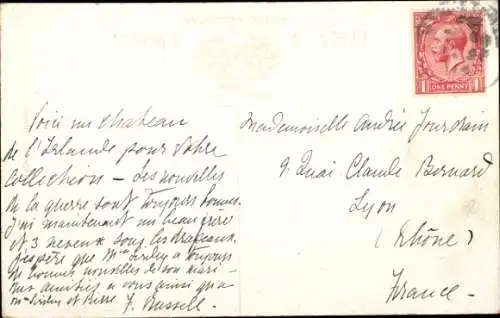 Voici un chateau
de l'Irlande pour votre
collection - Les nouvelles
de la guerre sont toujours bonnes.
J'ai maintenant un beau frère
et 3 neveux sous les drapeaux.
J'espère que Mme a toujours
de bonnes nouvelles de son mari -
mes amitiés a vous ainsi qu'a
et Pierre F. Russell.
Mademoiselle Andrée Jourdain
9. Quai Claude Bernard
Lyon
(Rhône)
France -
ONE PENNY